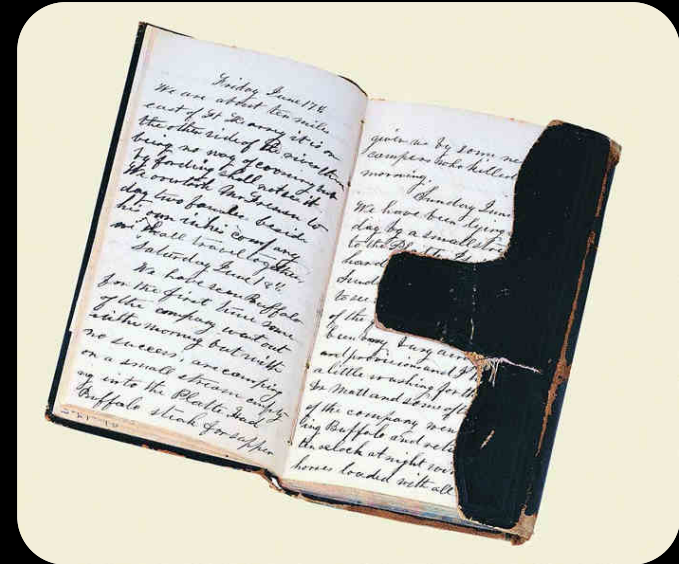 Friday June 17th
We are about ten miles
east of Ft Laramy it is on
the other side of the river there
being no way of crossing but
by fording shall not see it
We overtook Mr
day two families beside
his own in his company
we shall travel together
Saturday June 18th
We have seen Buffalo
for the first time some
of the company went out
in the morning but with
no success; are camping
on a small stream empty
ng into the Platte. Had
Buffalo steak for supper
given us by some ne
campers who killed
morning.
Sunday June
We have been lying
day by a small stre
to the Platte
hard
Sund
to se
of the
been very
and provision and
a little washing for the
Dr Matt and some of t
of the company wen
ing Buffalo and retu
oclock at night wi
horses loaded with all